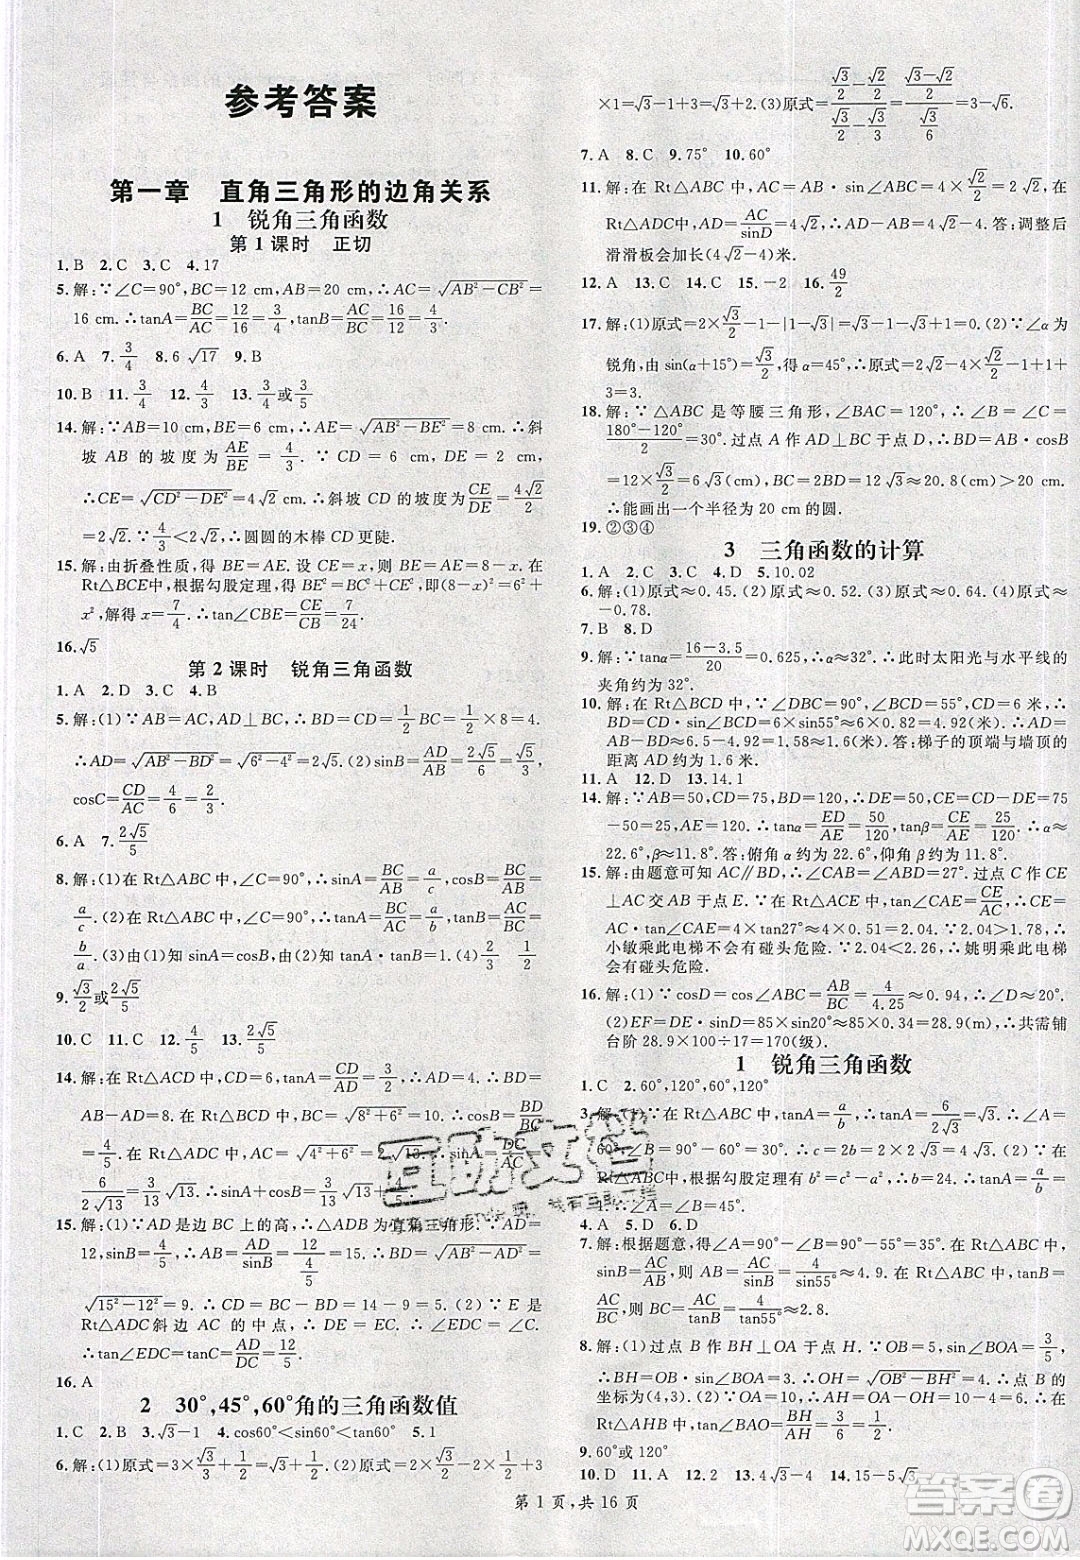 参考答案
第一章 直角三角形的边角关系
1 锐角三角函数
第1课时 正切
1. B 2. C 3. C 4. 17
5. 解:∵∠C=90°,BC=12 cm,AB=20 cm,∴AC=√(AB²-CB²)=
16 cm. ∴tanA=BC/AC=12/16=3/4,tanB=AC/BC=16/12=4/3.
6. A 7. 3/4 8. 6√17 9. B
10. B 11. 3/4 12. 4/3 13. 3/4或3/5
14. 解:∵AB=10 cm,BE=6 cm,∴AE=√(AB²-BE²)=8 cm.∴斜
坡 AB 的坡度为AE/BE=4/3.∵CD=6 cm,DE=2 cm,
∴CE=√(CD²-DE²)=4√2 cm.∴斜坡 CD 的坡度为CE/DE=4√2/2=
2√2.∵4/3<2√2,∴圆圆的木棒 CD 更陡.
15. 解:由折叠性质,得BE=AE. 设CE=x,则BE=AE=8-x. 在
Rt△BCE中,根据勾股定理,得 BE²=BC²+CE²,即(8-x)²=6²+
x²,解得x=7/4.∴CE=7/4.∴tan∠CBE=CE/CB=7/24.
16. √5
第2课时 锐角三角函数
1. A 2. D 3. C 4. B
5. 解:(1)∵AB=AC,AD⊥BC,∴BD=CD=1/2BC=1/2×8=4.
∴AD=√(AB²-BD²)=√(6²-4²)=2√5.(2)sinB=AD/AB=2√5/6=√5/3,
cosC=CD/AC=4/6=2/3.
6. A 7. 2√5/5
8. 解:(1)在Rt△ABC中,∠C=90°,∴sinA=BC/AB=a/c,cosB=BC/AB=
a/c.(2)在Rt△ABC中,∠C=90°,∴tanA=BC/AC=a/b,tanB=AC/BC=
b/a.(3)由(1)知sinA=cosB,由(2)知tanA·tanB=a/b·b/a=1.
9. √3/2或2√5/5
10. C 11. C 12. 4/5 13. 2√5/5
14. 解:在 Rt△ACD 中,∵∠C=90°,tanA=CD/AD=3/2,∴BD=
AB-AC=8.在Rt△ABD中,BC=√(8²+6²)=10.∴cosB=BD/BC=
4/5.在Rt△ADC中,AC=√(4²+6²)=2√13.∴sinA=DC/AC=
6/(2√13)=3/13√13.∴cosB+sinA=4/5+3/13√13.
15. 解:(1)∵AD是边BC上的高,∴AD=
12,sinB=4/5,∴AB=AD/sinB=15.∴BD=√(AB²-AD²)=
√(15²-12²)=9.∴CD=BC-BD=14-9=5.(2)∵E 是
Rt△ADC斜边AC的中点,∴DE=EC.∴∠EDC=∠C.
∴tan∠EDC=tanC=AD/DC=12/5.
16. A
2 30°,45°,60°角的三角函数值
1. C 2. B 3. √3-1 4. cos60°<sin60°<tan60° 5. 1
6. 解:(1)原式=3×√3/3+1/2=√3+1/2.(2)原式=4×√3/2-√3+1/2+3
×1=√3-1+3=√3+2.(3)原式=(√3/2-√2/2)/(√3/2-√3/3)=(√3/2-√3/3)/(√3/6)=3-√6.
7. A 8. C 9. 75° 10. 60°
11. 解:在Rt△ABC中,AC=AB·sinB=4×√2/2=2√2米,在
Rt△ACD中,AD=AC/sinD=2√2/(1/2)=4√2米.答:调整后
滑滑板会加长(4√2-4)米.
12. A 13. C 14. C 15. -2 16. 49/2
17. 解:(1)原式=2×√3/2-1-|1-√3|=√3-1-√3+1=0.(2)∵∠α为
锐角,由sin(α+15°)=√3/2,得α=45°.∴原式=2√2-4×√2/2-1+1+
3=3.
18. 解:∵△ABC是等腰三角形,∠BAC=120°,∴∠B=∠C=
(180°-120°)/2=30°.过点A作AD⊥BC于点D,∴BD=AB·cosB
=12×√3/2=6√3(cm).∴BC=2BD=12√3≈20.8(cm)>20 cm.
∴能画出一个半径为20 cm的圆.
19. ②③④
3 三角函数的计算
1. A 2. C 3. C 4. D 5. 10.02
6. 解:(1)原式≈0.45.(2)原式≈0.52.(3)原式≈0.64.(4)原式≈
-0.78.
7. B 8. D
9. 解:∵tanα=(16-3.5)/20=0.625,∴α≈32°.∴此时太阳光与水平线的
夹角约为32°.
10. 解:在Rt△BCD中,∵∠DBC=90°,∠BCD=55°,CD=6米,∴
BD=CD·sin∠BCD=6×sin55°≈6×0.82=4.92(米).∴AD=
AB-BD≈6.5-4.92=1.58≈1.6(米).答:梯子的顶端与墙顶的
距离AD约为1.6米.
11. A 12. D 13. 14.1
14. 解:∵AB=50,BD=120,∴DE=AB=50,∴CE=CD-DE=75
-50=25,AE=120.∴tanα=ED/AE=50/120,tanβ=CE/AE=25/120.∴α≈
22.6°,β≈11.8°.答:俯角α约为22.6°,仰角β约为11.8°.
15. 解:由题意可知AC∥BD,∴∠CAB=∠ABD=27°.过点C作CE
⊥AC交AB于点E,在Rt△ACE中,tan∠CAE=CE/AC,∴CE=
AC·tan∠CAE=4×tan27°≈4×0.51=2.04.∵2.04>1.78,∴
小敏乘此电梯不会有碰头危险.∵2.04<2.26,∴姚明乘此电梯
会有碰头危险.
16. 解:(1)∵cosD=cos∠ABC=AB/BC=4/4.25≈0.94,∴∠D≈20°.
(2)EF=DE·sinD=85×sin20°≈85×0.34=28.9(米).∴共需铺
台阶28.9×100÷17=170(级).
1 锐角三角函数
1. C 2. 60°,120°,60°,120°
3. 解:(1)∵在Rt△ABC中,tanA=a/b,∴tanA=6/(2√3)=√3.∴∠A=
60°.∠B=90°-60°=30°.∴c=2b=4√3.(2)∵tanA=a/b
4. A 5. D 6. D
7. 解:根据题意,得∠A=90°-∠B=90°-55°=35°.在Rt△ABC中,
sinB=AC/AB,则AB=AC/sinB=4/sin55°≈4.9.在Rt△ABC中,tanB=
AC/BC,则BC=AC/tanB=4/tan55°≈2.8.
8. 解:(1)过点B作BH⊥OA于点H.∵OB=5,sin∠BOA=3/5,
∴BH=OB·sin∠BOA=3.∴OH=√(OB²-BH²)=4.∴点B的
坐标为(4,3).(2)∵OA=10,∴AH=OA-OH=10-4=6.在
Rt△AHB中,tan∠BAO=BH/AH=3/6=1/2.
9. 60°或120°
10. D 11. A 12. 2 13. 4/3 14. 15-5√3
第1页,共16页
答案圈
MXQE.COM